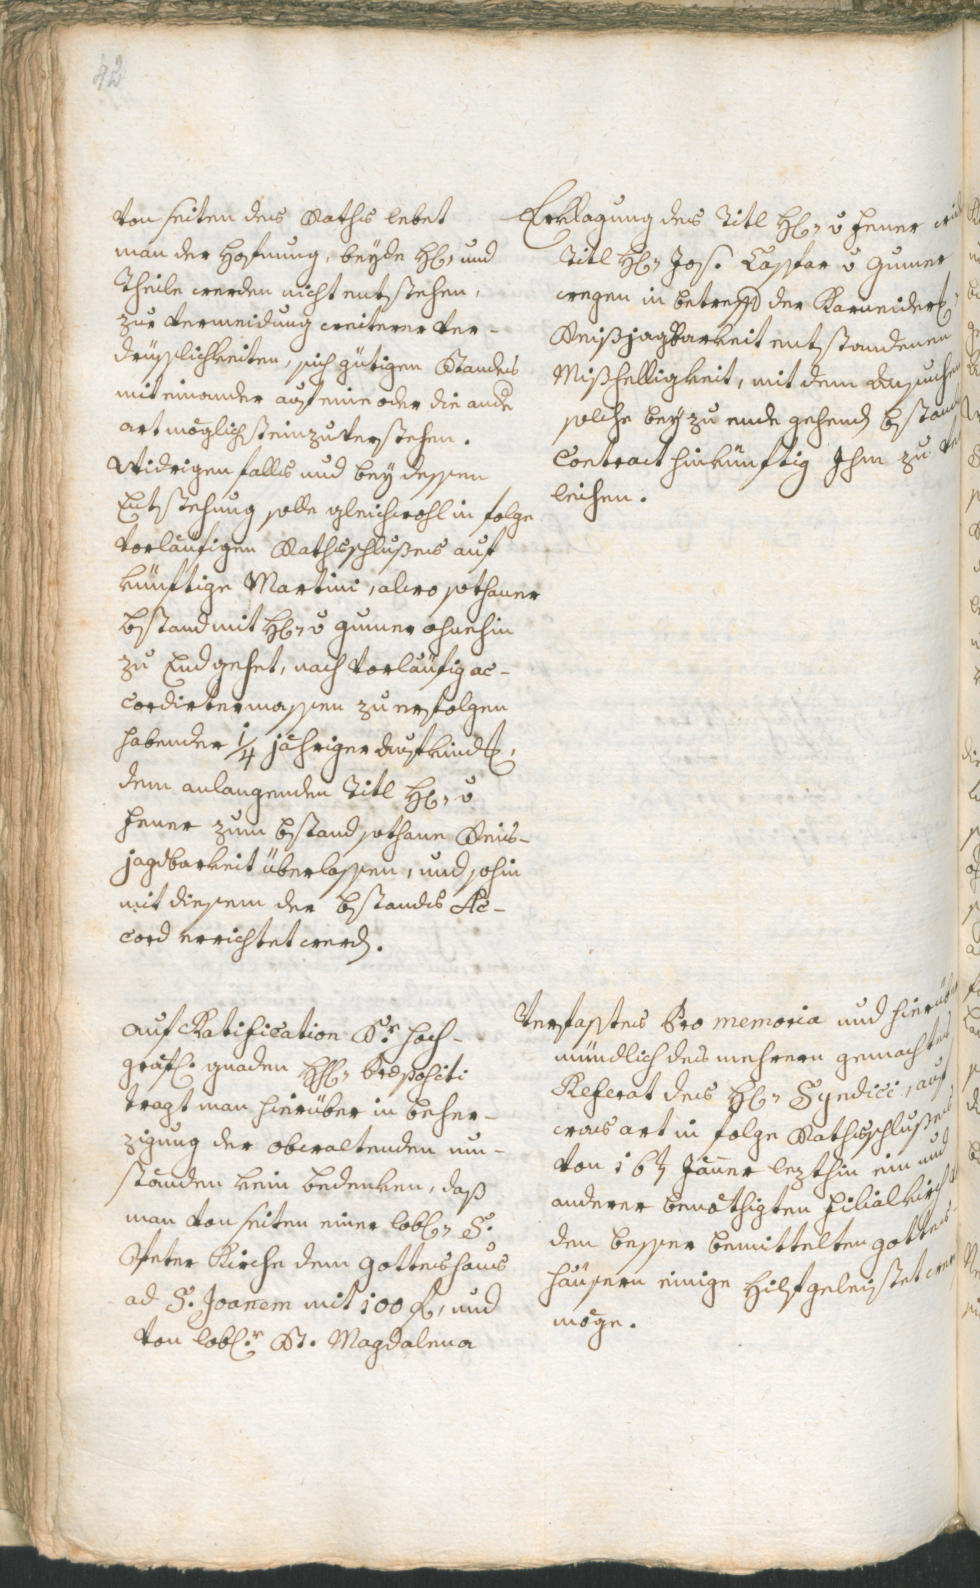 42
Von seiten des Raths lebet
man der Hofnung, beyde HH. und
Theile werden nicht entstehen,
zur vermeidung weiterer ver-
drüßlichkeiten, sich gütigen Standes
mit einander auf eine oder die ande
art möglichst einzuverstehen.
Widrigen falls und bey dessen
Entstehung solle gleichwohl in folge
vorläufigen Rathsschlußes auf
künftige Martini, alwo sothaner
bstand mit H. v Gumer ohnehin
zu End gehet, nach vorläufig ac-
cordirtermassen zu erfolgen
habender 1/4 jähriger Aufkindt,
dem anlangenden Titl H. v
Hener zum bstand sothane Reis-
jagdbarkeit überlassen, und sohin
mit diesem der bstands Ac-
cord errichtet werd.
Erklagung des Titl H. v Hener
Titl H. Jos. Caspar v Gumer
wegen in betreff der Karneider
Reißjagdbarkeit entstandenen
Mißhelligkeit, mit dem Ansuchen
solche bey zu ende gehend bstand
Contract hinkünftig Ihm zu
leihen.
auf Ratification Sr. hoch-
gräfl. gnaden HH. Præpositi
tragt man hierüber in beher-
zigung der obwaltenden um-
ständen kein bedenken, daß
man von seiten einer lobl. S.
Peter Kirche dem gotteshaus
ad S. Joanem mit 100 f, und
von lobl.r St. Magdalena
Verfastes Pro memoria und hierüber
mündlich des mehrern gemachtes
Referat des H. Syndici, auf
was art in folge Rathsschlußes
von 16t Jäner lezthin ein und
anderer benöthigten filialkirch
den besser bemittelten gottes-
häusern einige Hilf geleistet wer
möge.